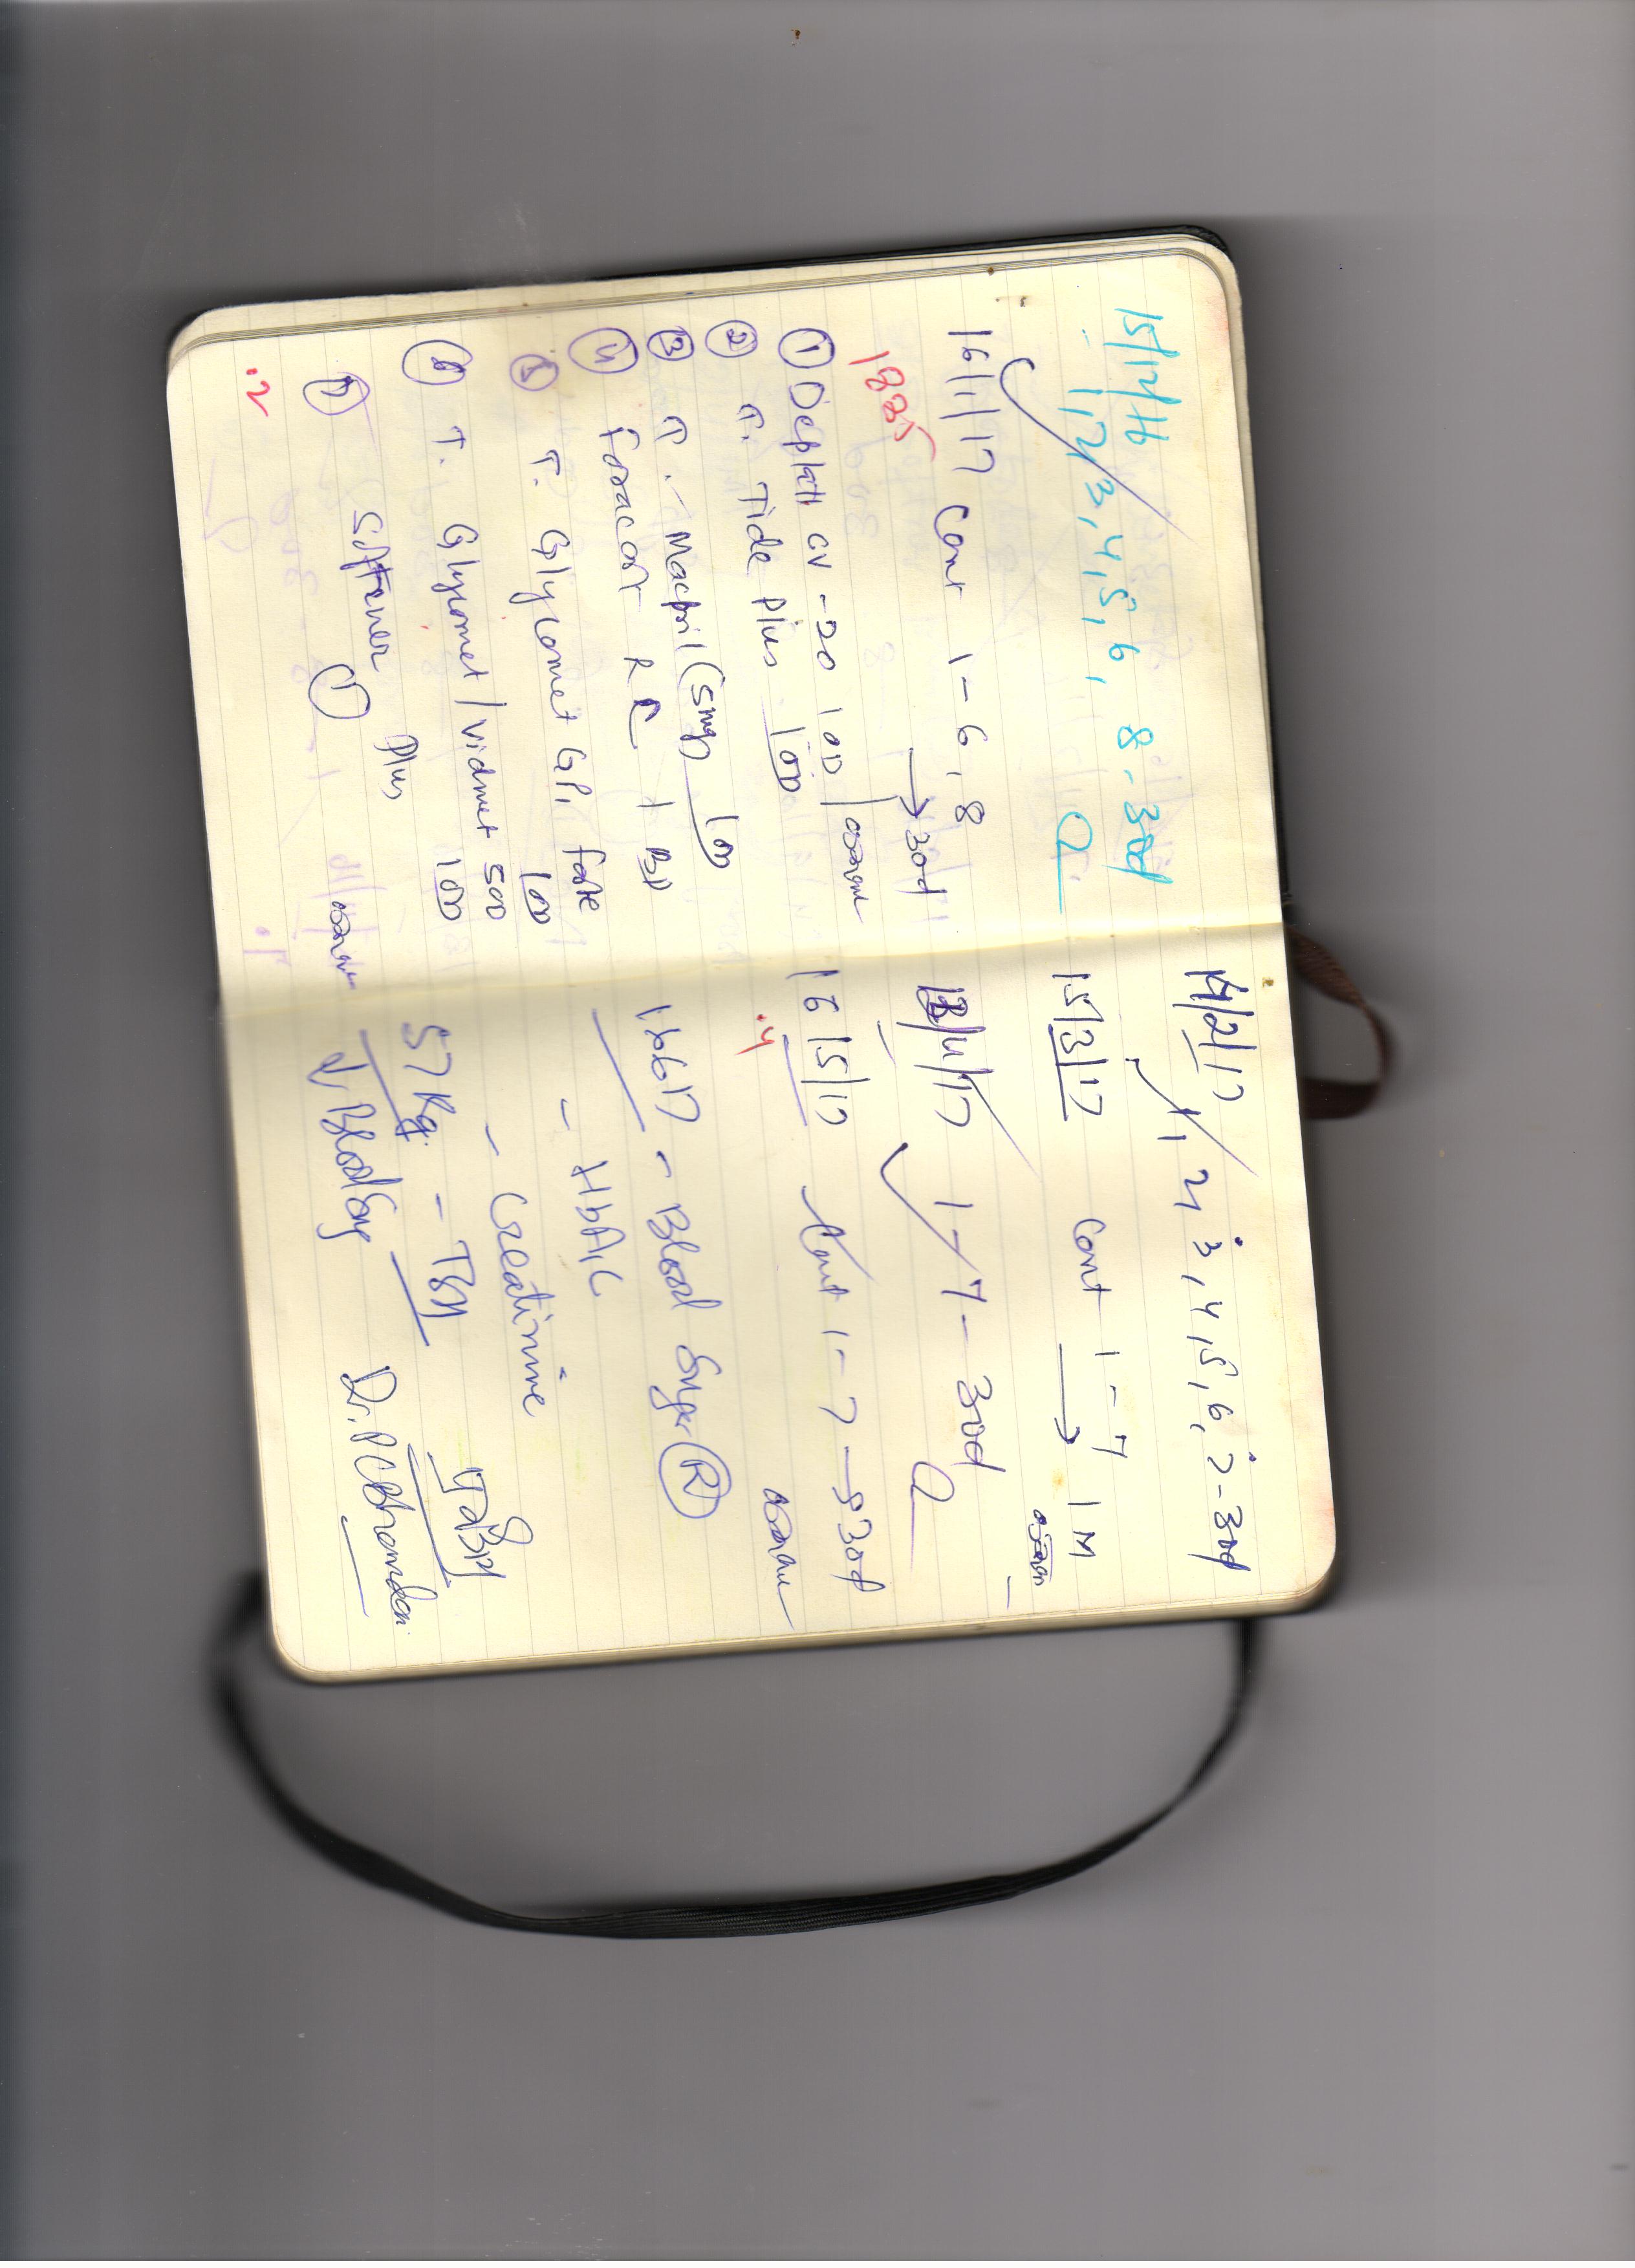 15/12/16
1, 2, 3, 4, 5, 6, 8 - 30d
16/1/17 Cont 1-6, 8
→ 30d
1885
① Deplatt CV -20 1OD
② T. Tide Plus 1OD
③ T. Macpril (5mg) 1OD
④ foracort RC 1 BD
⑤ T. Glycomet GP1 forte
1OD
⑥ T. Glycomet / Vidmet 500
1OD
⑦ Softener Plus
①
.2
14/2/17
1, 2, 3, 4, 5, 6, 7 - 30d
15/3/17 Cont 1-7
→ 1M
13/4/17 1-7 - 30d
16/5/17 Cont 1-7 → 30d
.4
16617 - Blood Sugar Ⓡ
- HbA1C
- Creatinine
57 Kg. - TSH
Dr. P C